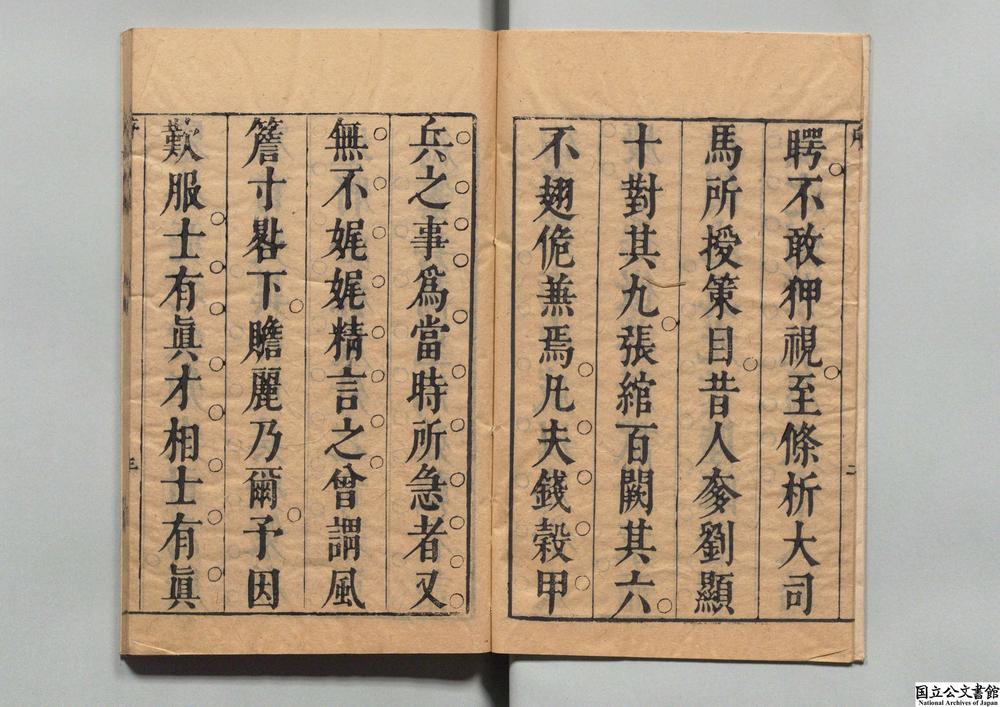 愕不敢狎視至條析大司
馬所授策目昔人奓劉顯
十對其九張綰百闕其六
不翅俛兼焉凡夫錢穀甲
兵之事為當時所急者又
無不娓娓精言之曾謂風
簷寸晷下贍麗乃爾予因
歎服士有眞才相士有眞
序
二
三
国立公文書館
National Archives of Japan